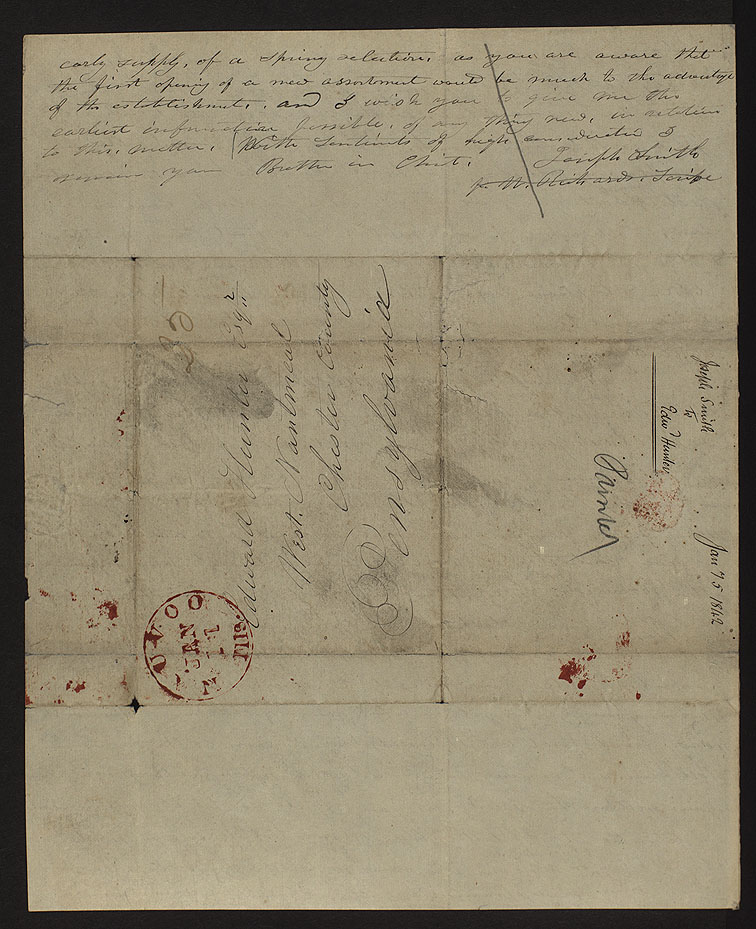 early supply, of a spring selection, as you are aware that
the first opening of a new assortment would be much to the advantage
of the establishment, and I wish you to give me the
earliest information possible, of any thing new, in relation
to this, matter. With sentiments of high consideration I
remain your Brother in Christ. Joseph Smith
W. Richards. Scribe
Edward Hunter Esqr
West. Nantmeal
Chester County
Pensylvania
UVOO
JAN
Ills.
Joseph Smith
to
Edwd Hunter
Jany 5 1842